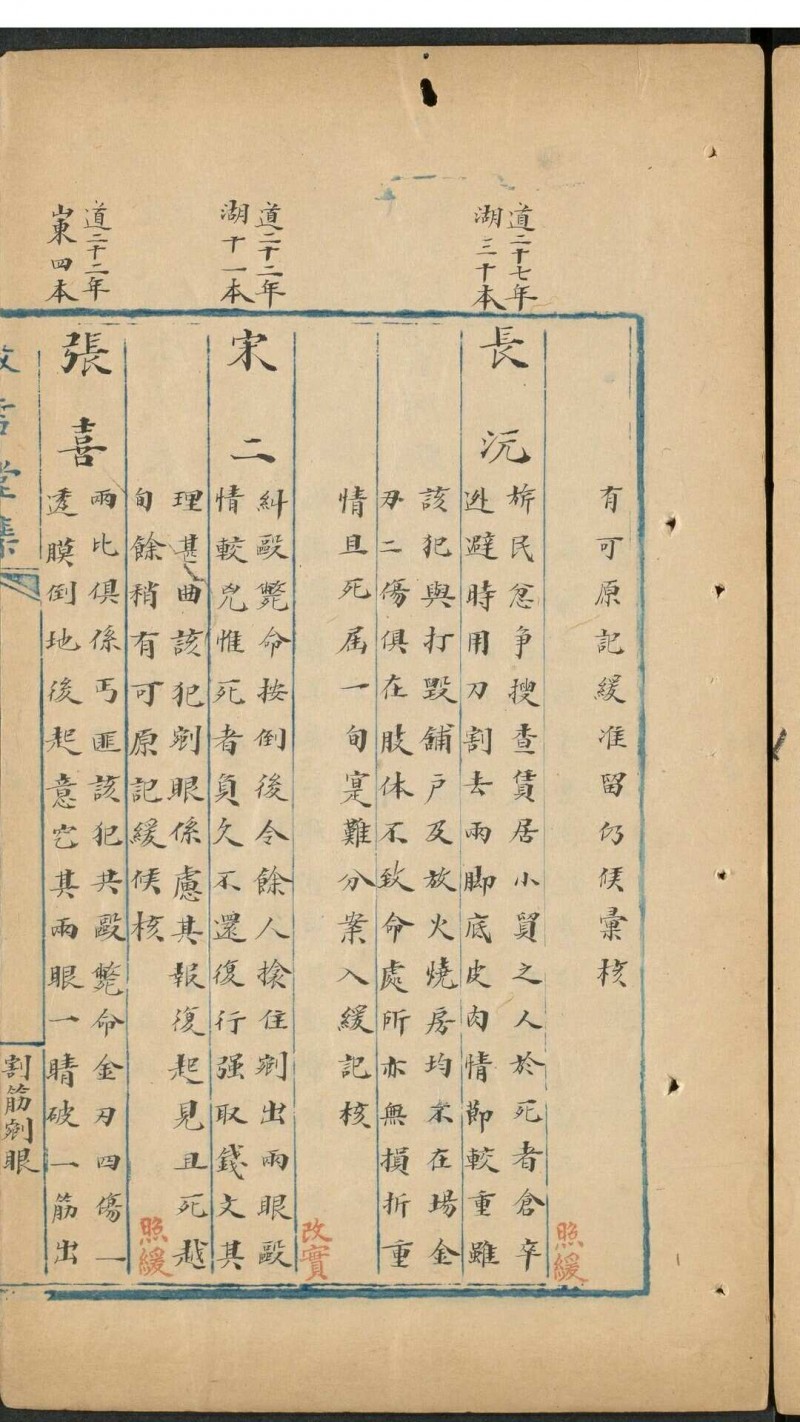 有可原記緩准留仍候彙核
道二十七年
湖三十本
長沅
照緩
旂民忿争搜查賃居小貿之人於死者倉卒
迯避時用刀割去兩脚底皮肉情節較重雖
該犯與打毀舖户及放火燒房均未在場金
刃二傷俱在肢体不致命處所亦無損折重
情且死届一旬寔難分案入緩記核
道二十二年
湖十一本
宋二
改實
糾毆斃命按倒後令餘人搇住剜出兩眼毆
情較兇惟死者負欠不還復行强取錢文其
理甚曲該犯剜眼係慮其報復起見且死越
旬餘稍有可原記緩候核
照緩
道二十二年
山東四本
張喜
兩比俱係丐匪該犯共毆斃命金刃四傷一
透膜倒地後起意空其兩眼一睛破一筋出
割筋剜眼